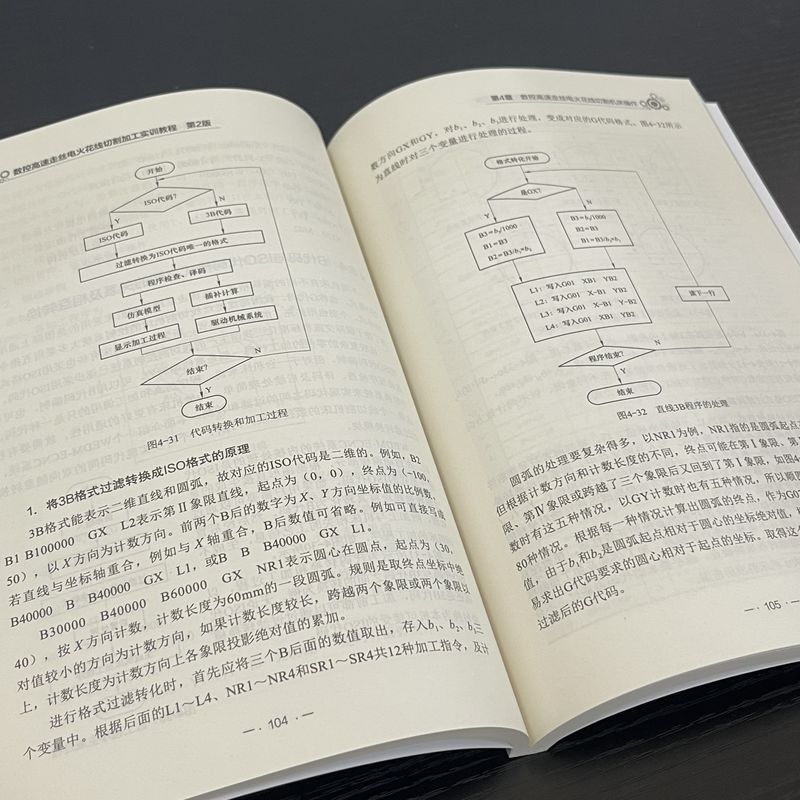 数控高速走丝电火花线切割加工实训教程 第2版
开始
ISO代码?
Y
N
ISO代码
3B代码
过滤转换为ISO代码唯一的格式
程序检查、译码
仿真模型
插补计算
显示加工过程
驱动机械系统
N
结束?
Y
结束
图4-31 代码转换和加工过程
1. 将3B格式过滤转换成ISO格式的原理
3B格式能表示二维直线和圆弧，故对应的ISO代码是二维的。例如，B2
B1 B100000 GX L2表示第Ⅱ象限直线，起点为（0，0），终点为（-100,
50），以X方向为计数方向。前两个B后的数字为X、Y方向坐标值的比例数，
若直线与坐标轴重合，例如与X轴重合，B后数值可省略。例如可直接写成
B40000 B B40000 GX L1，或B B B40000 GX L1。
B30000 B40000 B60000 GX NR1表示圆心在圆点，起点为（30,
40），按X方向计数，计数长度为60mm的一段圆弧。规则是取终点坐标中绝
对值较小的方向为计数方向，如果计数长度较长，跨越两个象限或两个象限以
上，计数长度为计数方向上各象限投影绝对值的累加。
进行格式过滤转化时，首先应将三个B后面的数值取出，存入b₁、b₂、b₃三
个变量中。根据后面的L1～L4、NR1～NR4和SR1～SR4共12种加工指令，及计
— · 104 · —
第4章 数控高速走丝电火花线切割机床操作
数方向GX和GY，对b₁、b₂、b₃进行处理，变成对应的G代码格式。图4-32所示
为直线时对三个变量进行处理的过程。
格式转化开始
是GX?
Y
N
B3=b₃/1000
B1=B3
B2=B3/b₁×b₂
B3=b₃/1000
B2=B3
B1=B3/b₂×b₁
L1：写入G01 XB1 YB2
L2：写入G01 X-B1 YB2
L3：写入G01 X-B1 Y-B2
L4：写入G01 XB1 YB2
读下一行
程序结束?
N
Y
结束
图4-32 直线3B程序的处理
圆弧的处理要复杂得多，以NR1为例，NR1指的是圆弧起点
但根据计数方向和计数长度的不同，终点可能在第Ⅰ象限、第
限、第Ⅳ象限或跨越了三个象限后又回到了第Ⅰ象限，如图4-
数时有这五种情况，以GY计数时也有五种情况，所以顺圆
80种情况。根据每一种情况计算出圆弧的终点，作为G0
值，由于b₁和b₂是圆弧起点相对于圆心的坐标绝对值，
易求出G代码要求的圆心相对于起点的坐标。取得这
过滤后的G代码。
— · 105 · —